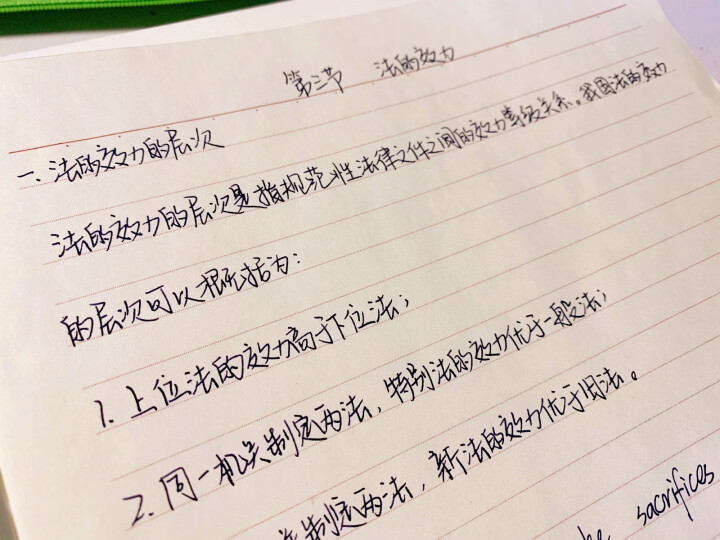 第三节 法的效力
一、法的效力的层次
法的效力的层次是指规范性法律文件之间的效力等级关系。我国法的效力
的层次可以概括为:
1. 上位法的效力高于下位法;
2. 同一机关制定两法,特别法的效力优于一般法;
制定两法,新法的效力优于旧法。
sacrifices